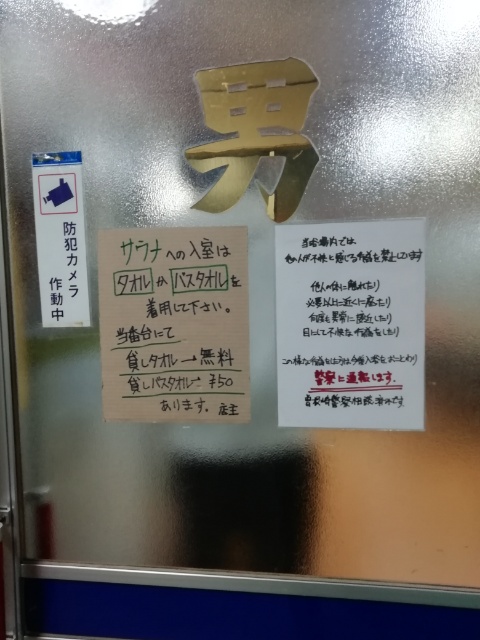 男
防犯カメラ
作動中
サウナへの入室は
タオルかバスタオルを
着用して下さい。
当番台にて
貸しタオル→無料
貸しバスタオル→¥50
あります。店主
当浴場内では
他人が不快と感じる行為を禁止しています
他人の体に触れたり
必要以上に近くに座ったり
何度も異常に接近したり
目にして不快な行為をしたり
この様な行為をした方は今後入場をおことわり
警察に通報します。
曽根崎警察相談済みです